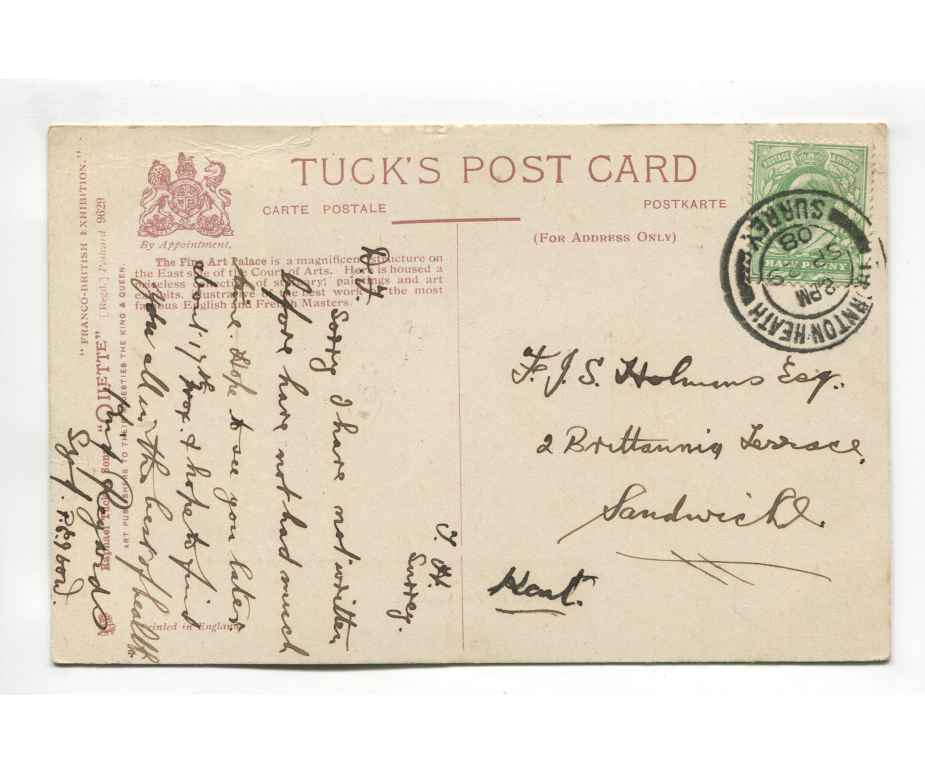 TUCK'S POST CARD
CARTE POSTALE
POSTKARTE
(FOR ADDRESS ONLY)
By Appointment.
The Fine Art Palace is a magnificent structure on
the East side of the Court of Arts. Here is housed a
priceless collection of statuary, paintings and art
exhibits, illustrative of the best work of the most
famous English and French Masters.
"FRANCO-BRITISH EXHIBITION."
"OILETTE" [Regd.] Postcard 9629
Raphael Tuck & Sons
ART PUBLISHERS TO THEIR MAJESTIES THE KING & QUEEN.
Printed in England
POSTAGE
HALFPENNY
THORNTON HEATH
2 PM
SP
08
SURREY
F. J. S. Holmans Esq.
2 Brittannia Terrace,
Sandwich.
Kent.
T. H.
Surrey.
Sorry I have not written
before have not had much
time. Hope to see you later
about 17th prox. & hope to find
you all in the best of health